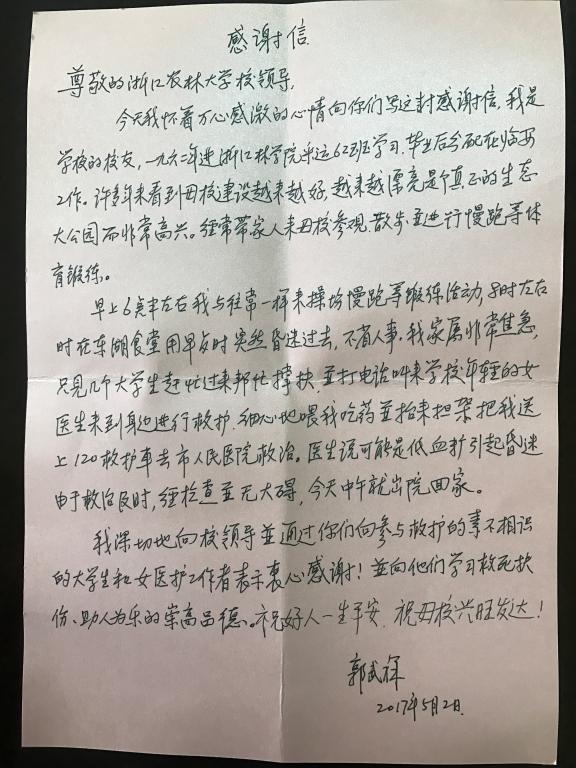 感谢信
尊敬的浙江农林大学校领导,
今天我怀着万分感激的心情向你们写这封感谢信。我是
学校的校友,一九六二年进浙江林学院采运62班学习.毕业后分配在临安
工作。许多年来看到母校建设越来越好,越来越漂亮是个真正的生态
大公园而非常高兴。经常带家人来母校参观、散步並进行慢跑等体
育锻练。
早上6点半左右我与往常一样来操场慢跑等锻练活动,8时左右
时在东湖食堂用早歺时突然昏迷过去,不省人事.我家属非常焦急,
只见几个大学生赶忙过来帮忙搀扶,並打电话叫来学校年轻的女
医生来到身边进行救护.细心地喂我吃药並抬来担架把我送
上120救护车去市人民医院救治。医生说可能是低血扩引起昏迷
由于救治及时,经检查並无大碍,今天中午就出院回家。
我深切地向校领导並通过你们向参与救护的素不相识
的大学生和女医护工作者表示衷心感谢!並向他们学习救死扶
伤、助人为乐的崇高品德。祝好人一生平安.祝母校兴旺发达!
郭武
2017年5月2日.